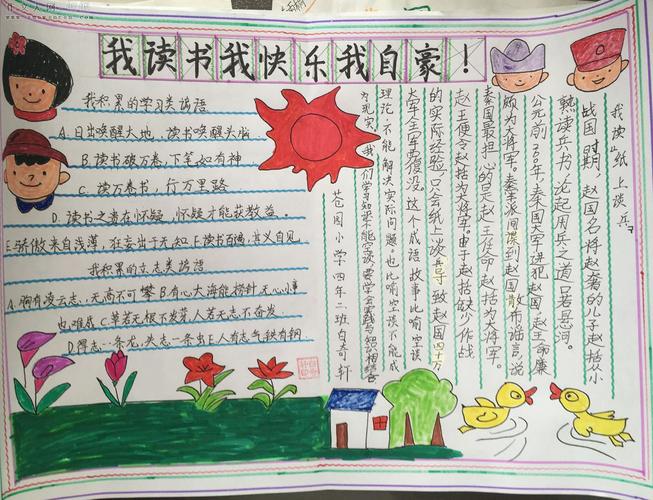 我读书我快乐我自豪！
我积累的学习类谚语
A.日出唤醒大地 读书唤醒头脑
B.读书破万卷，下笔如有神
C.读万卷书，行万里路
D.读书之者在怀疑，怀疑才能获教益。
E.骄傲来自浅薄，狂妄出于无知 F.读书百遍，其义自见
我积累的立志类谚语
A.胸有凌云志，无高不可攀 B.有心大海能捞针 无心小事
也难成 C.草若无根不发芽 人若无志不奋发
D.得志一条龙，失志一条虫 E.人有志气 铁有钢
我读《纸上谈兵》
战国时期，赵国名将赵奢的儿子赵括从小
熟读兵书，论起用兵之道口若悬河。
公元前260年，秦国大军进犯赵国，赵王命廉
颇为大将军。秦军派间谍到赵国散布谣言，说
秦国最担心的是赵王任命赵括为大将军。
赵王便令赵括为大将军。由于赵括缺少作战
的实际经验，只会纸上谈兵，导致赵国四十万
大军全军覆没。这个成语故事比喻空谈
理论，不能解决实际问题，也比喻空谈不能成
为现实。我们学习知识不能空谈，要学会实践与知识相结合
苍园小学四年二班白奇轩